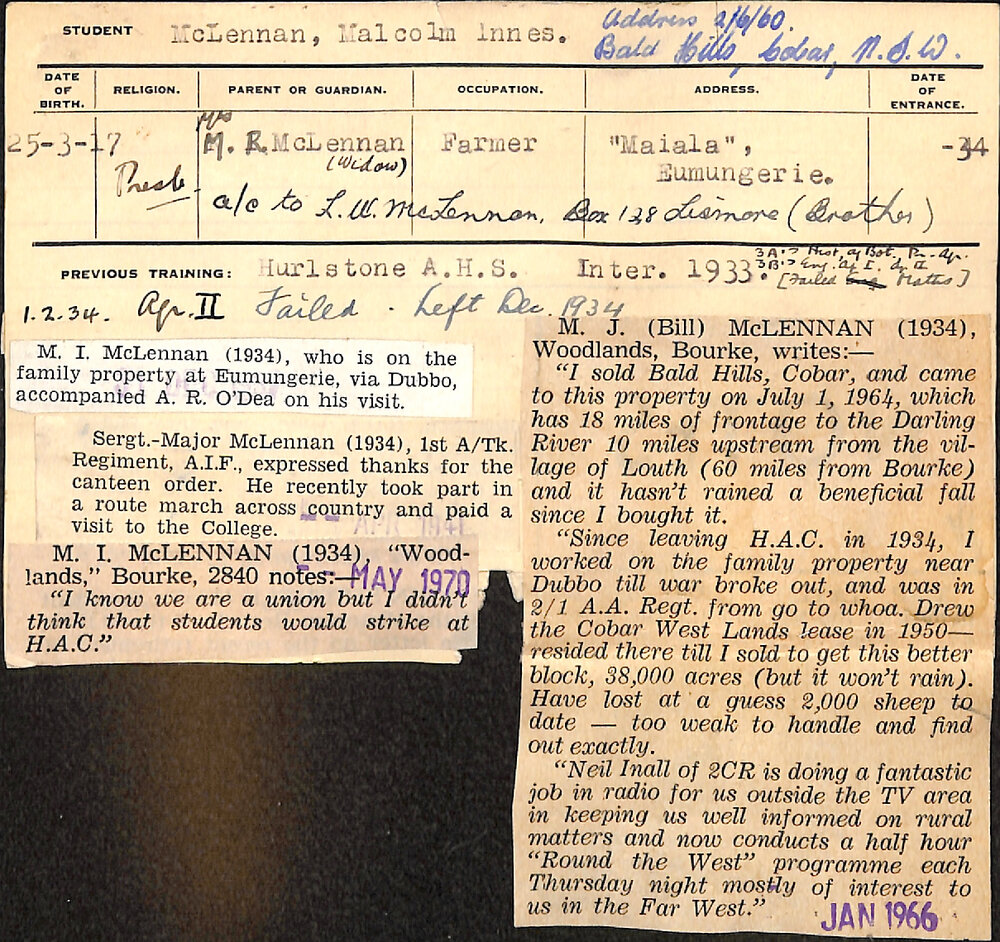 STUDENT McLennan, Malcolm Innes.
Address 2/6/60.
Bald Hills, Cobar, N.S.W.
DATE OF BIRTH. RELIGION. PARENT OR GUARDIAN. OCCUPATION. ADDRESS. DATE OF ENTRANCE.
Mrs
25-3-17 M. R. McLennan Farmer "Maiala", -34
(Widow) Eumungerie.
Presb.
a/c to L. W. McLennan, Box 128 Lismore (Brother)
PREVIOUS TRAINING: Hurlstone A.H.S. Inter. 1933.
3A:- Hist, Ag Bot. Pr. Agr.
3B:- Eng. Ag I. Ag II.
[Failed Maths]
1.2.34. Agr. II Failed. Left Dec. 1934
M. I. McLennan (1934), who is on the
family property at Eumungerie, via Dubbo,
accompanied A. R. O'Dea on his visit.
Sergt.-Major McLennan (1934), 1st A/Tk.
Regiment, A.I.F., expressed thanks for the
canteen order. He recently took part in
a route march across country and paid a
visit to the College.
APR 1941
M. I. McLENNAN (1934), "Wood-
lands," Bourke, 2840 notes:—
MAY 1970
"I know we are a union but I didn't
think that students would strike at
H.A.C."
M. J. (Bill) McLENNAN (1934),
Woodlands, Bourke, writes:—
"I sold Bald Hills, Cobar, and came
to this property on July 1, 1964, which
has 18 miles of frontage to the Darling
River 10 miles upstream from the vil-
lage of Louth (60 miles from Bourke)
and it hasn't rained a beneficial fall
since I bought it.
"Since leaving H.A.C. in 1934, I
worked on the family property near
Dubbo till war broke out, and was in
2/1 A.A. Regt. from go to whoa. Drew
the Cobar West Lands lease in 1950—
resided there till I sold to get this better
block, 38,000 acres (but it won't rain).
Have lost at a guess 2,000 sheep to
date — too weak to handle and find
out exactly.
"Neil Inall of 2CR is doing a fantastic
job in radio for us outside the TV area
in keeping us well informed on rural
matters and now conducts a half hour
"Round the West" programme each
Thursday night mostly of interest to
us in the Far West."
JAN 1966